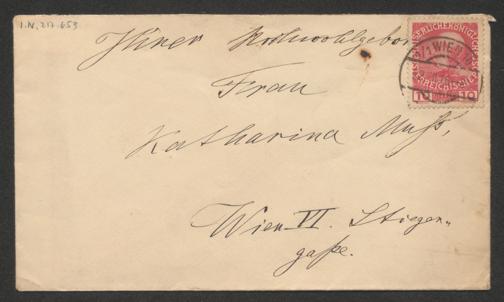 I.N. 217.653
Ihrer Hochwohlgeboren
Frau
Katharina Muß,
Wien VI. Stiegen-
gaße.
KAISERLICHE KÖNIGLICHE
ÖSTERREICHISCHE
10 10
WIEN